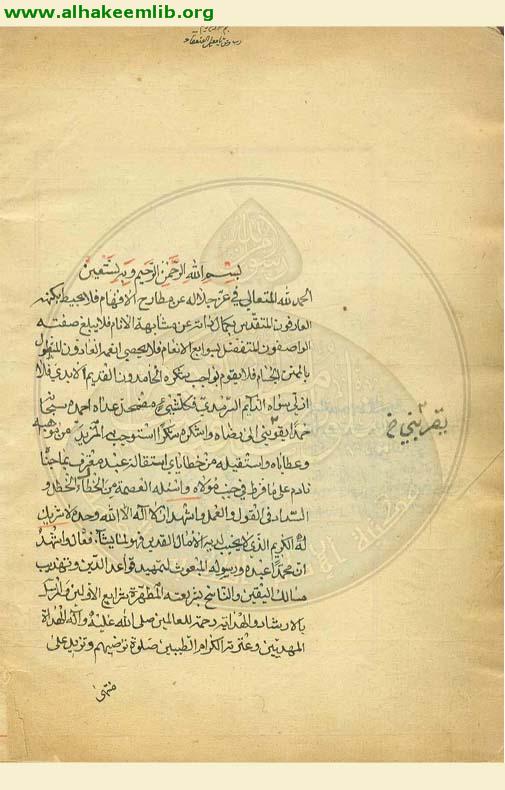 www.alhakeemlib.org
بسم الله الرحمن الرحيم وبه نستعين
الحمد لله المتعالي في عز جلاله عن مطارح الافهام فلا يحيط بكنهه
العارفون المتقدس بكمال ذاته عن مشابهة الانام فلا يبلغ صفته
الواصفون المتفضل بسوابغ الانعام فلا يحصي نعمه العادون المتطول
بالمنن الجسام فلا يقوم بواجب شكره الحامدون القديم الابدي فلا
ازلي سواه الدائم السرمدي فكل شيء مضمحل عداه احمده سبحانه
حمدا يقربني الى رضاه واشكره شكرا استوجب به المزيد من مواهبه
يقربني خ
وعطاياه واستقيله من خطاياي استقالة عبد معترف بما جناه
نادم على ما فرط في جنب مولاه واسئله العصمة من الخطأ والخطل و
السداد في القول والعمل واشهد ان لا اله الا الله وحده لا شريك
له الكريم الذي لا يخيب لديه الآمال القدير فهو لما يشآء فعال واشهد
ان محمدا عبده ورسوله المبعوث لتمهيد قواعد الدين وتهذيب
مسالك اليقين والناسخ بشريعته المطهرة شرايع الاولين والمرسل
بالارشاد والهداية رحمة للعالمين صلى الله عليه وآله الهداة
المهديين وعترته الكرام الطيبين صلوة ترضيهم وتزيد على
منتهى